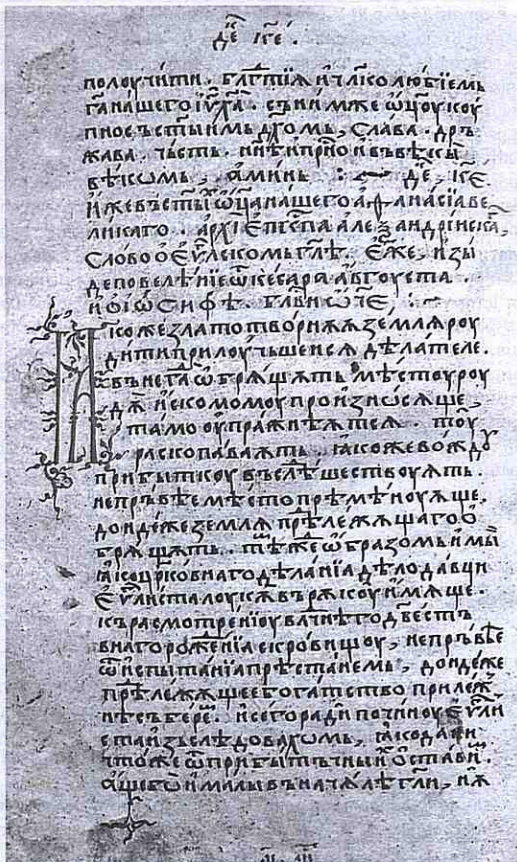 де҃ к҃е.
полоучити. бл҃гтїѧ и чл҃колюбїемь
г҃а нашего і҃у х҃а. съ нимже ѡ҃цоу коу
пно съ ст҃ыимь дх҃омь, слава. дръ
жава. чьсть. нн҃ѣ и прⷭ҇но и въ вѣкы
вѣкѡмь, аминь : ~ де҃, к҃е.
иже въ ст҃ыⷯ ѡ҃ца нашего аѳанасїа ве
ликаго. архїеп҃скпа алеѯандрїнскаⷢ,
слово о еѵ҃лскомь гл҃ѣ. еже, изы
де повелѣнїе ѿ кесарѧ авгоуста.
и о іѡсифѣ. бл҃ви ѡ҃ч҃е, : ~
Ꙗкоже златотворнѫѫ землѧ роу
дити прилоучьшеисѧ дѣлателе.
ꙁвѣнегда ѡбрѧщѫть мѣстоу роу
дѫ искомомоу произносѧще,
тамо оупражнѣѫтсѧ. тоу
раскопаваѫть. ꙗкоже вождоу
прибыткоу въслѣшествоуѫть.
не прьвѣе мѣсто прѣмѣноуѫще,
дондеже землѧ прѣлежѧщаго о
брѧщѫть. тѣмже ѡбразомь и мы
ꙗко цр҃ковнаго дѣланїа дѣлодавци
еѵ҃листа лоукѫ въ рѫкоу имѫще.
къ расмотренїоу влⷣчнѣго дв҃ьств
внаго рожⷣенїа скровищоу, не прьвѣе
ѿ испытанїа прѣстанемь, дондеже
прѣлежѧщее богатство прилеж
нѣ съберемь. и сего ради почи нꙋ еѵ҃ли
ста изьслѣдовахомь, ꙗко да ни
чтоже ѿ прибытъчныиⷯ ѡставиⷨ.
аще бо и малы въ начѧлѣ гл҃и, нѫ